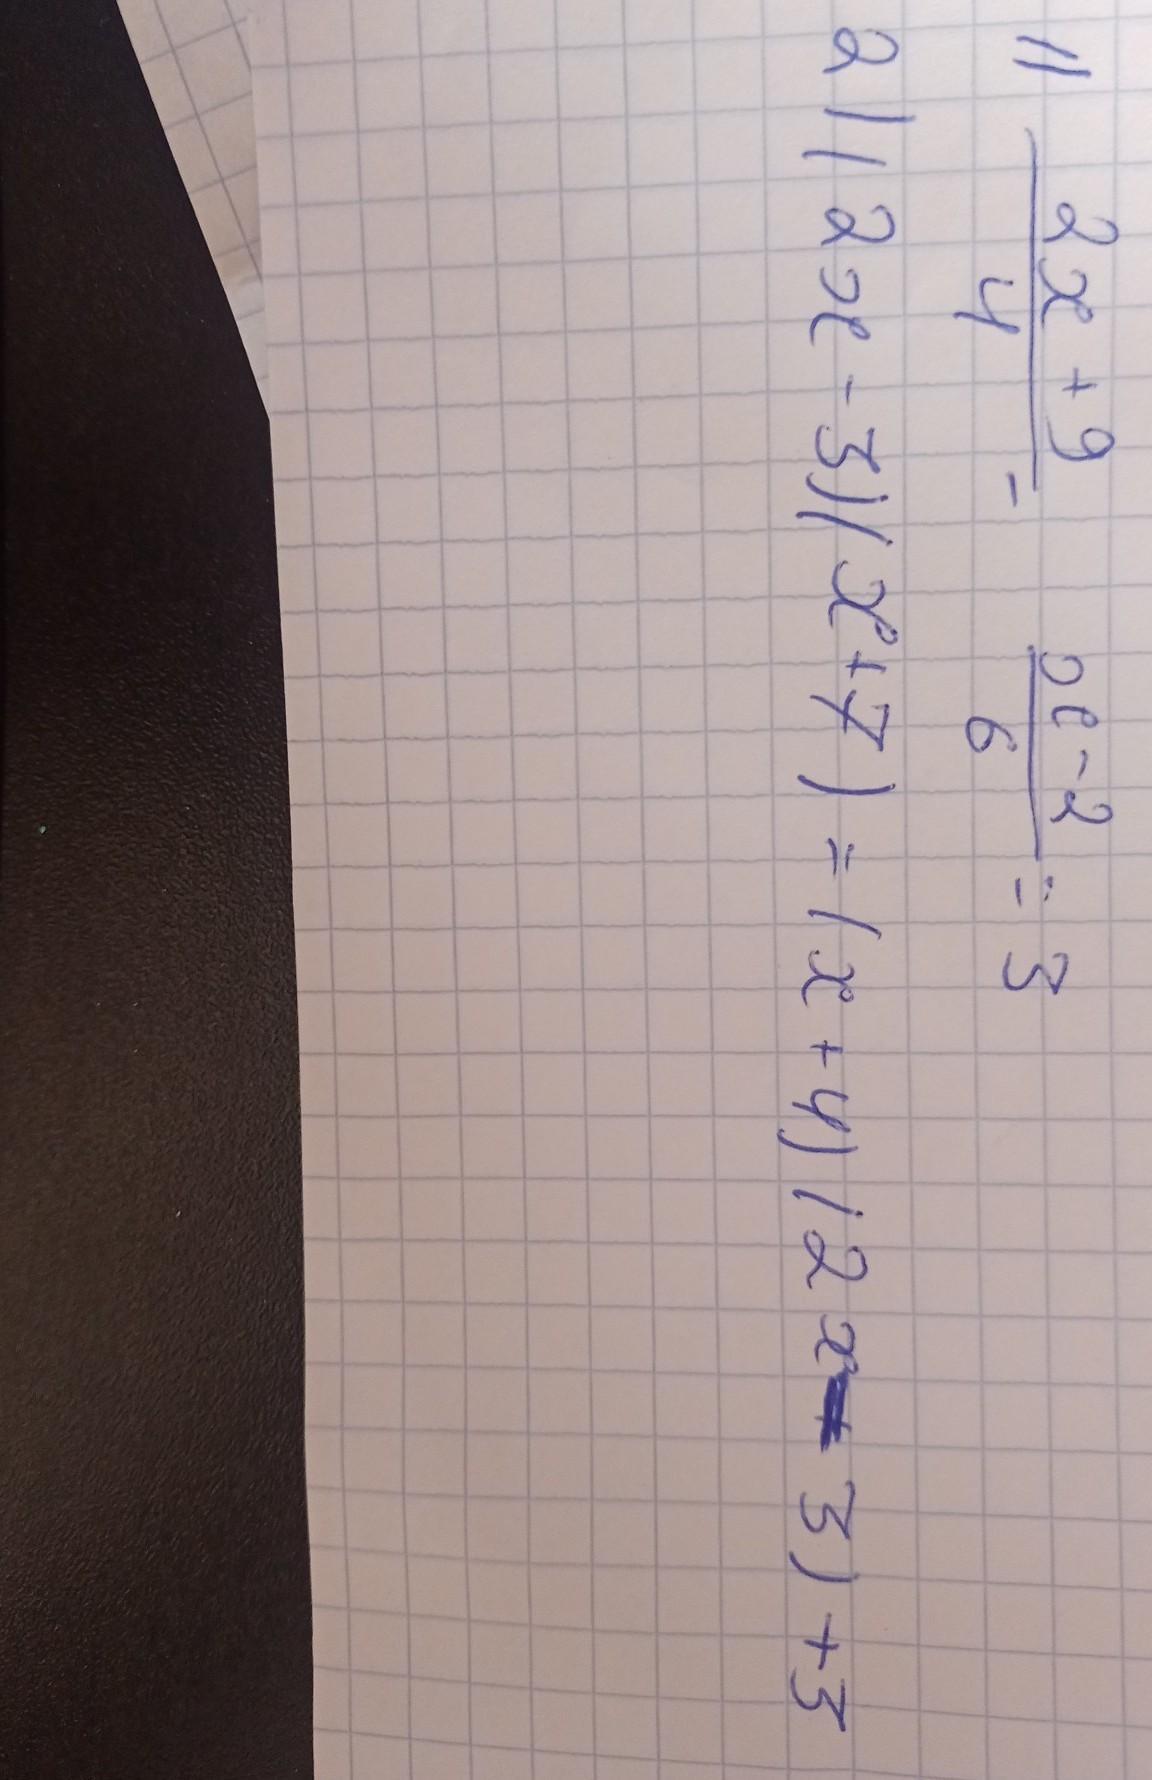 1) (2x+9)/4 - (x-2)/6 = 3
2) (2x-3)(x+7) = (x+4)(2x-3)+3